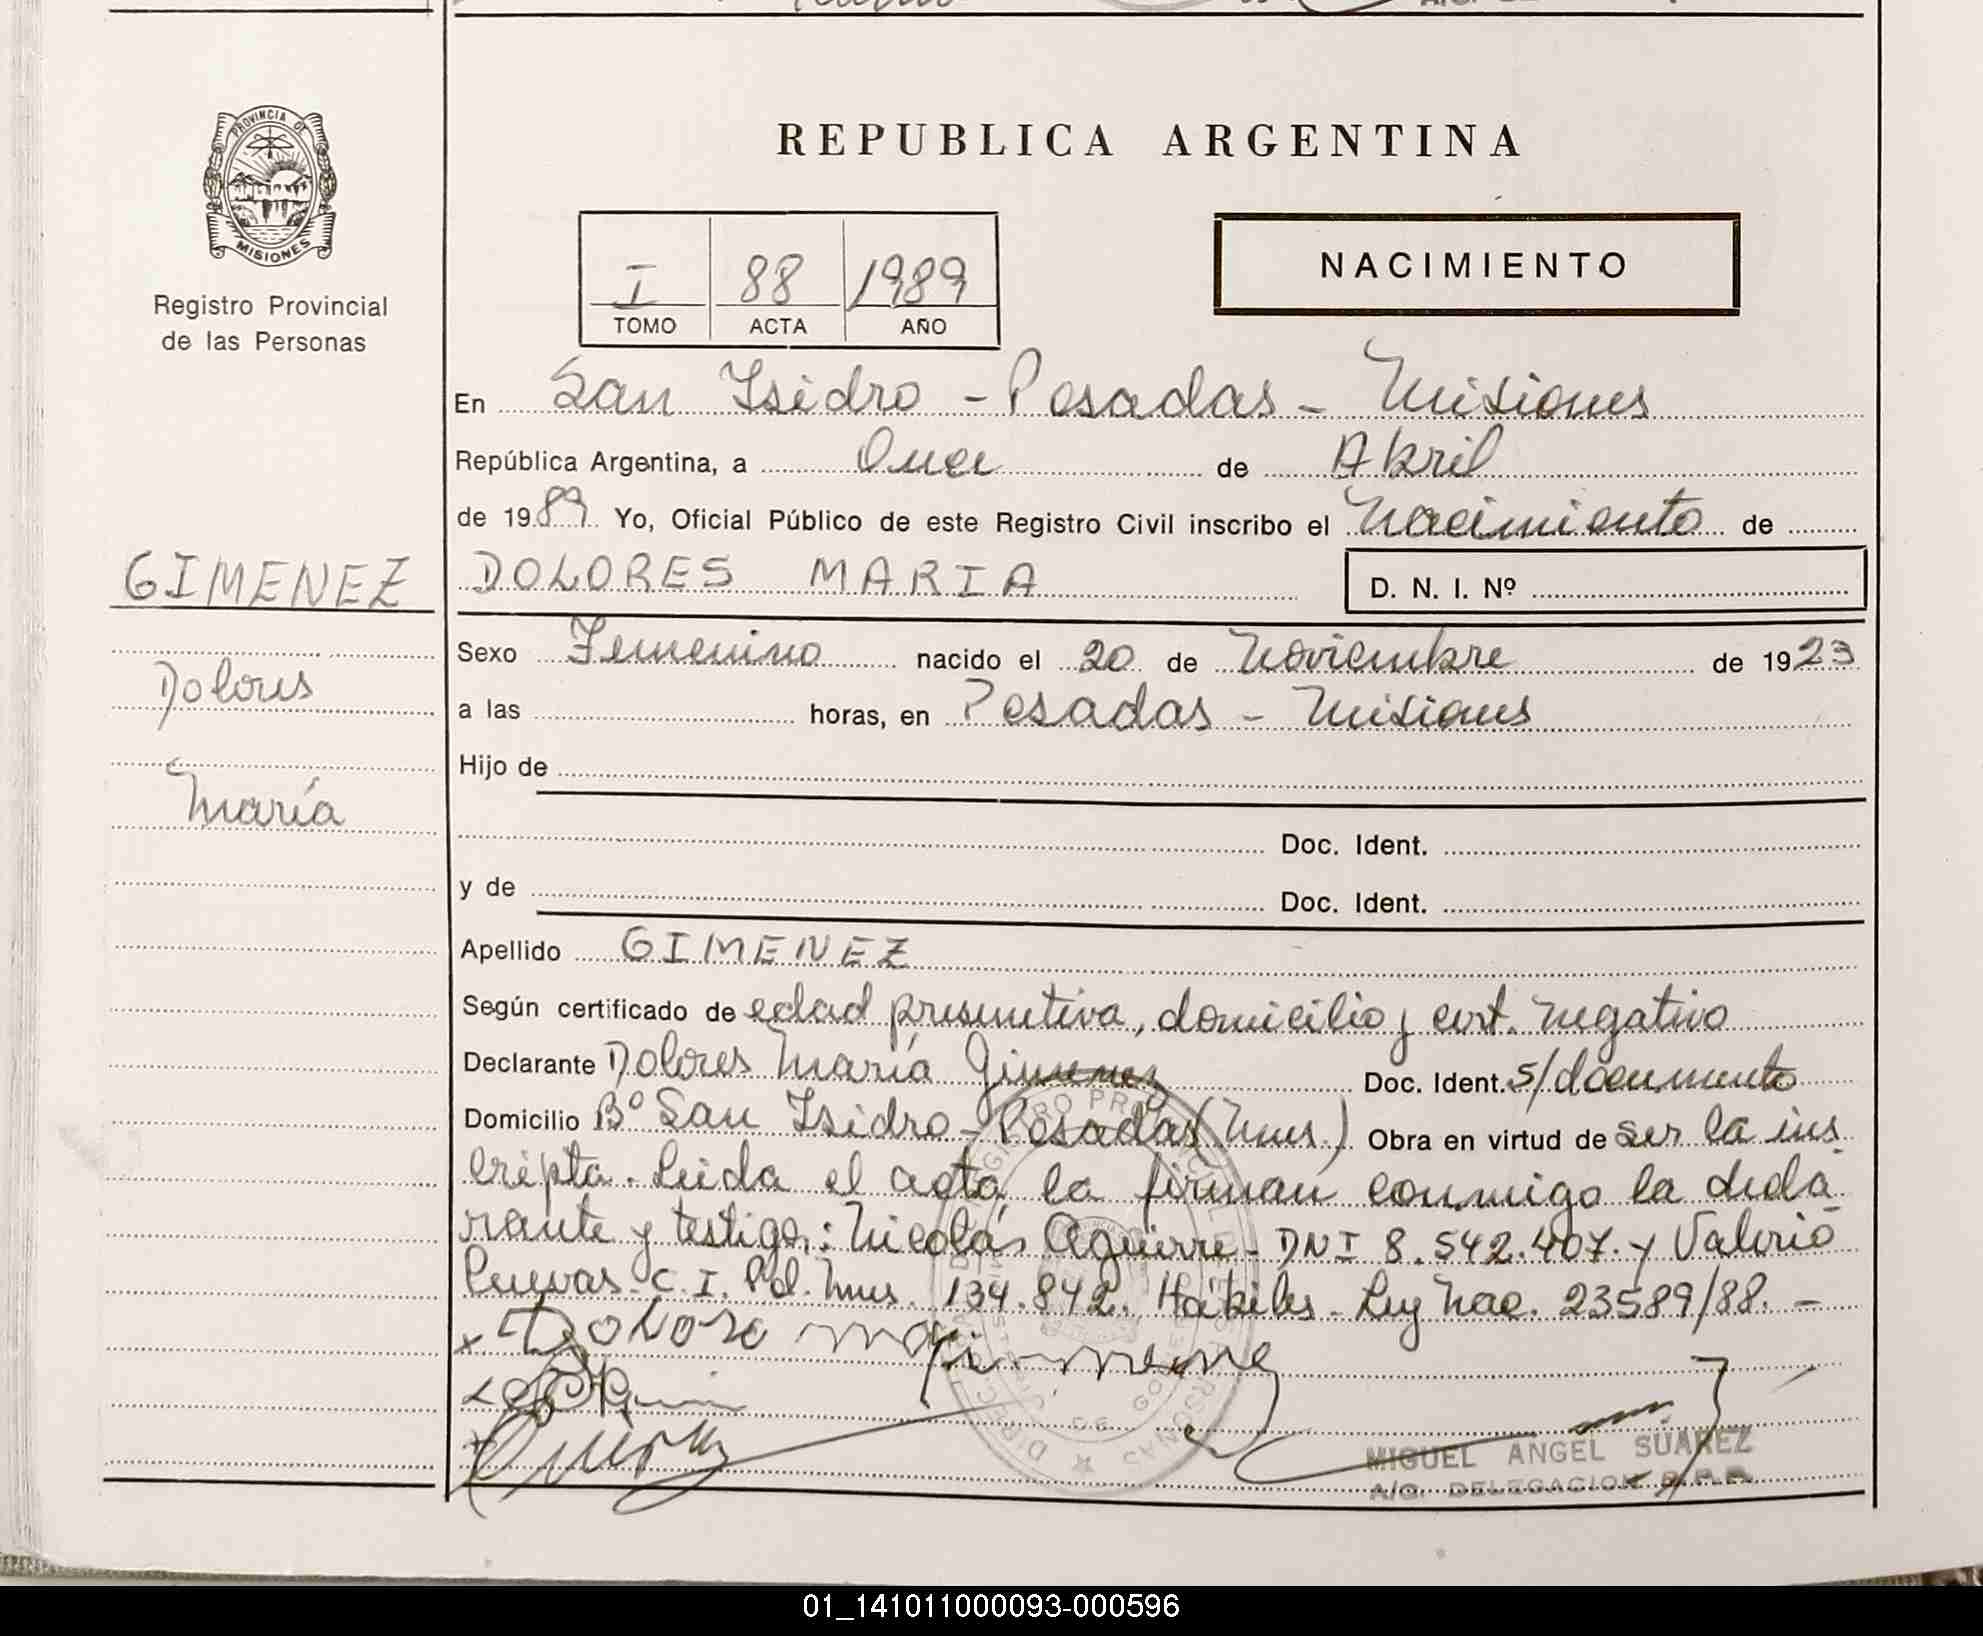 PROVINCIA DE
MISIONES
Registro Provincial
de las Personas
REPUBLICA ARGENTINA
I 88 1989
TOMO ACTA AÑO
NACIMIENTO
En San Isidro - Posadas - Misiones
República Argentina, a Once de Abril
de 1989 Yo, Oficial Público de este Registro Civil inscribo el Nacimiento de
GIMENEZ
DOLORES MARIA
D. N. I. Nº
Dolores
María
Sexo Femenino nacido el 20 de Noviembre de 1923
a las horas, en Posadas - Misiones
Hijo de
Doc. Ident.
y de Doc. Ident.
Apellido GIMENEZ
Según certificado de edad presuntiva, domicilio y cert. negativo
Declarante Dolores María Gimenez Doc. Ident. s/documento
Domicilio Bº San Isidro - Posadas (Mnes.) Obra en virtud de ser la ins
cripta. Leida el acta la firman conmigo la decla
rante y testigos: Nicolás Aguirre - DNI 8.542.407. y Valerio
Cuevas. C.I. Pol. Mnes. 134.842. Hábiles - Ley Nac. 23589/88. -
MIGUEL ANGEL SUAREZ
A/C. DELEGACION R.P.P.
01_141011000093-000596